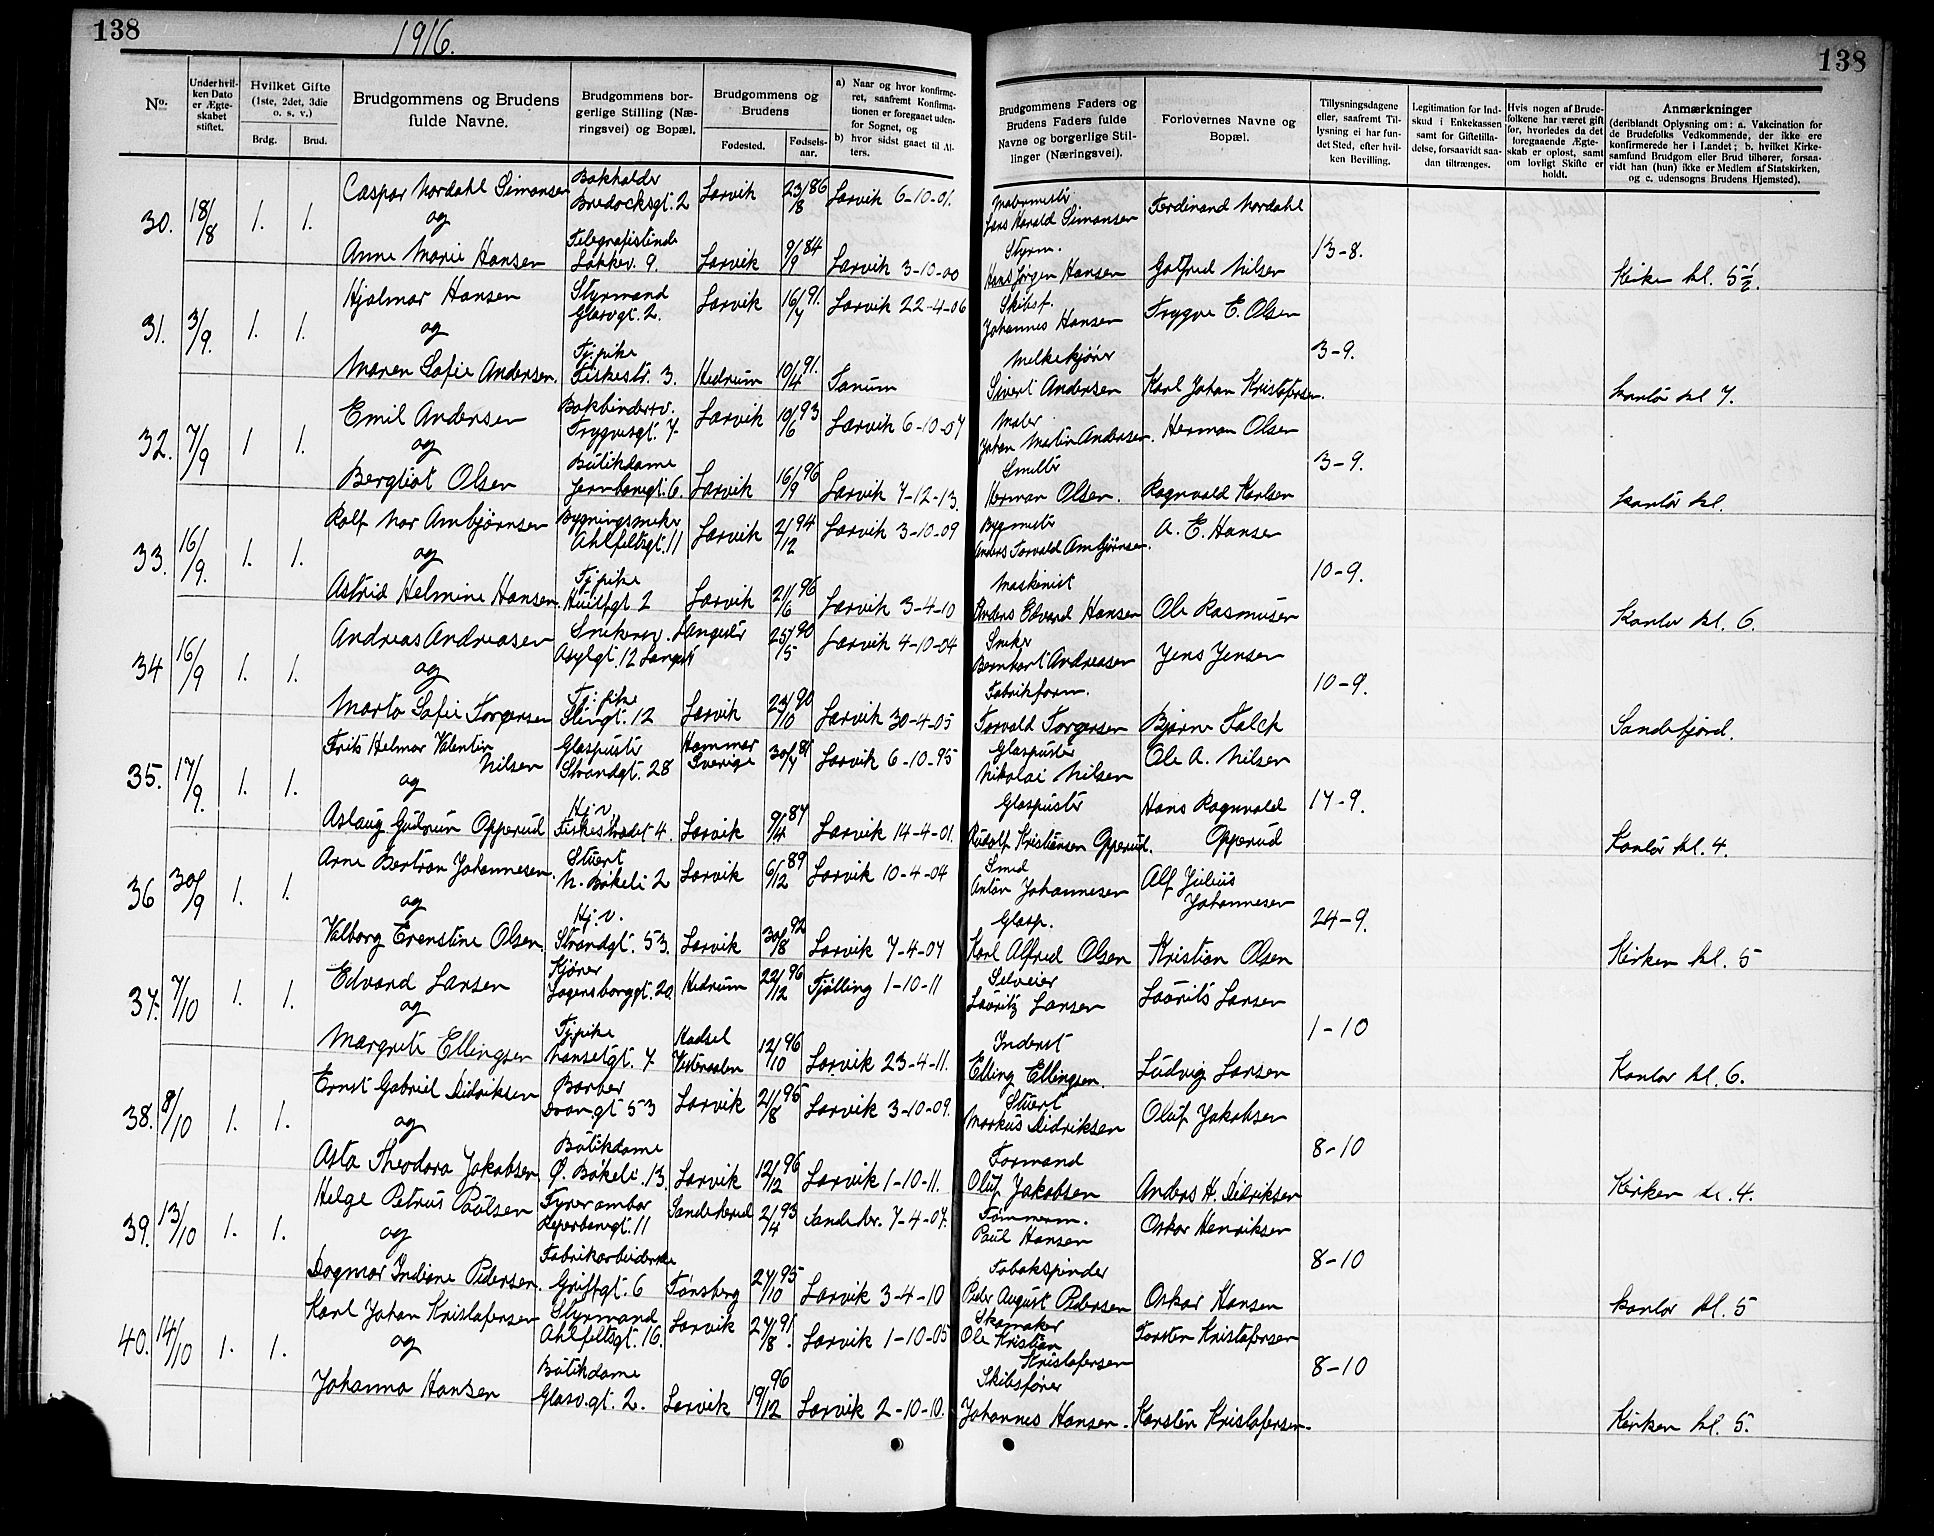 138
1916.
138
No.
Underhvil-
ken Dato
er Ægte-
skabet
stiftet.
Hvilket Gifte
(1ste, 2det, 3die
o. s. v.)
Brdg.
Brud.
Brudgommens og Brudens
fulde Navne.
Brudgommens bor-
gerlige Stilling (Næ-
ringsvei) og Bopæl.
Brudgommens og
Brudens
Fødested.
Fødsels-
aar.
a) Naar og hvor konfirme-
ret, saafremt Konfirma-
tionen er foregaaet uden-
for Sognet, og
b) hvor sidst gaaet til Al-
ters.
Brudgommens Faders og
Brudens Faders fulde
Navne og borgerlige Stil-
linger (Næringsvei).
Forlovernes Navne og
Bopæl.
Tillysningsdagene
eller, saafremt Til-
lysning ei har fun-
det Sted, efter hvil-
ken Bevilling.
Legitimation for Ind-
skud i Enkekassen
samt for Giftetilla-
delse, forsaavidt saa-
dan tiltrænges.
Hvis nogen af Brude-
folkene har været gift
før, hvorledes da det
foregaaende Ægte-
skab er opløst, samt
om lovligt Skifte er
holdt.
Anmærkninger
(deriblandt Oplysning om: a. Vakcination for
de Brudefolks Vedkommende, der ikke ere
konfirmerede her i Landet; b. hvilket Kirke-
samfund Brudgom eller Brud tilhører, forsaa-
vidt han (hun) ikke er Medlem af Statskirken,
og c. udensogns Brudens Hjemsted).
30. 18/8 1. 1. Caspar Nordahl Simonsen Bokholder Bredocksgt. 2 Larvik 23/8 86 Larvik 6-10-01. Malermestr Lars Harald Simonsen Ferdinand Nordahl
og 13-8.
Anne Marie Hansen Telegrafistinde Løkkev. 9. Larvik 9/9 84 Larvik 3-10-00 Styrm. Hans Jørgen Hansen Gotfred Nilsen Kirken kl. 5½.
31. 3/9. 1. 1. Hjalmar Hansen Styrmand Glasvgt. 2. Larvik 16/7 91. Larvik 22-4-06 Skibsf. Johannes Hansen Trygve E. Olsen
og 3-9.
Maren Sofie Andersen. Tj.pike Fiskestr. 3. Hedrum 10/4 91. Tanum Melkekjører Sivert Andersen Karl Johan Kristofersen. kontor kl 7.
32. 7/9 1 1. Emil Andersen Bokbinderv. Trygvesgt. 7 Larvik 10/6 93 Larvik 6-10-07 Maler Johan Martin Andersen. Herman Olsen
og 3-9.
Bergliot Olsen Butikdame Jernbanegt. 6. Larvik 16/9 96 Larvik 7-12-13. Smelter Herman Olsen. Ragnvald Karlsen kontor kl.
33. 16/9. 1. 1. Rolf Nor Ambjørnsen Bygningssnekr Ahlfeltsgt. 11 Larvik 2/12 94 Larvik 3-10-09 Bygmestr Anders Torvald Ambjørnsen. A. E. Hansen
og 10-9.
Astrid Helmine Hansen. Tj.pike Huitfgt 2 Larvik 21/6 96 Larvik 3-4-10 Maskinist Anders Edvard Hansen Ole Rasmusen Kontor kl. 6.
34 16/9 1. 1. Andreas Andreasen Snekersv. Asylgt. 12 Langest Langestr 25/5 90 Larvik 4-10-04 Sneker Bernhart Andreasen Jens Jensen
og 10-9.
Marta Sofie Torgersen Tj.pike Stengt. 12 Larvik 23/10 90 Larvik 30-4-05 Fabrikform. Torvald Torgersen Bjarne Falck Sandefjord.
35. 17/9. 1. 1. Frits Helmar Valentin Nilsen Glaspuster Strandgt. 28 Hammar Sverige 30/7 81 Larvik 6-10-95 Glaspuster Nikolai Nilsen Ole A. Nilsen
og 17-9.
Aslaug Gudrun Opperud Hj.v. Fiskestrædet 4. Larvik 9/4 87 Larvik 14-4-01. Glaspuster Rudolf Kristiansen Opperud. Hans Ragnvald Opperud Kontor kl. 4.
36 30/9 1. 1. Arne Bertran Johannesen. Stuert N. Bøkeli 2 Larvik 6/12 89 Larvik 10-4-04 Smed Anton Johannesen Alf Julius Johannesen
og 24-9.
Valborg Erenstine Olsen. Hj.v. Strandgt. 53. Larvik 30/8 92 Larvik 7-4-07 Glasp. Karl Alfred Olsen Kristian Olsen Kirken kl. 5
37. 7/10 1. 1. Edvard Larsen Kjører Lagensborggt. 20. Hedrum 22/12 96 Tjølling 1-10-11 Selveier Lauritz Larsen Laurits Larsen
og 1-10
Margrete Ellingsen Tj.pike Nansetgt. 7 Hadsel Vesteraalen 12/10 96 Larvik 23-4-11. Inderst Elling Ellingsen. Ludvig Larsen Kontor kl. 6.
38. 8/10 1. 1. Ernst Gabriel Didriksen Barber Dron.gt 53 Larvik 21/8 95 Larvik 3-10-09. Stuert Markus Didriksen Oluf Jakobsen
og 8-10
Asta Theodora Jakobsen. Butikdame Ø. Bøkeli. 13. Larvik 12/12 96 Larvik 1-10-11. Formand Oluf Jakobsen Anders H. Didriksen Kirken kl. 4.
39. 13/10 1. 1. Helge Petrus Paulsen Fyrer ombor Reperbanegt. 11 Sandeherred 2/4 93 Sandehr. 7-4-07. Tømmerm. Paul Hansen Oskar Henriksen
og 8-10
Dagmar Indiane Pedersen. Fabrikarbeiderske Griffgt. 6 Tønsberg 27/10 95 Larvik 3-4-10 Tobakspinder Peder August Pedersen Oskar Hansen kontor kl. 5
40. 14/10 1. 1. Karl Johan Kristofersen Styrmand Ahlfeltsgt. 16. Larvik 27/8 91. Larvik 1-10-05 Skomaker Ole Kristian Kristofersen Torsten Kristofersen
og 8-10
Johanna Hansen Butikdame Glasv.gt. 2. Larvik 19/12 96 Larvik 2-10-10. Skibsfører Johannes Hansen. Karsten Kristofersen. Kirken kl. 5.